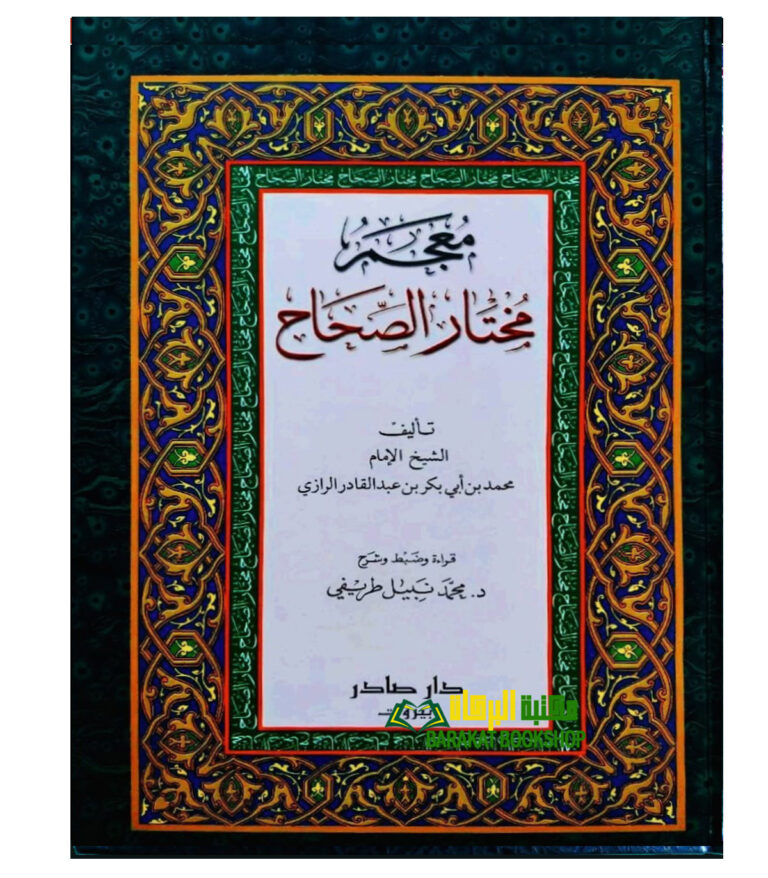 مختار الصحاح مختار الصحاح مختار الصحاح مختار الصحاح
مُعجَمُ
مُختَار الصِّحَاح
تأليف
الشيخ الإمام
محمد بن أبي بكر بن عبد القادر الرازي
قراءة وضَبط وشَرح
د. محمّد نَبيل طريفي
دار صادر
بيروت
مكتبة البركات
BARAKAT BOOKSHOP